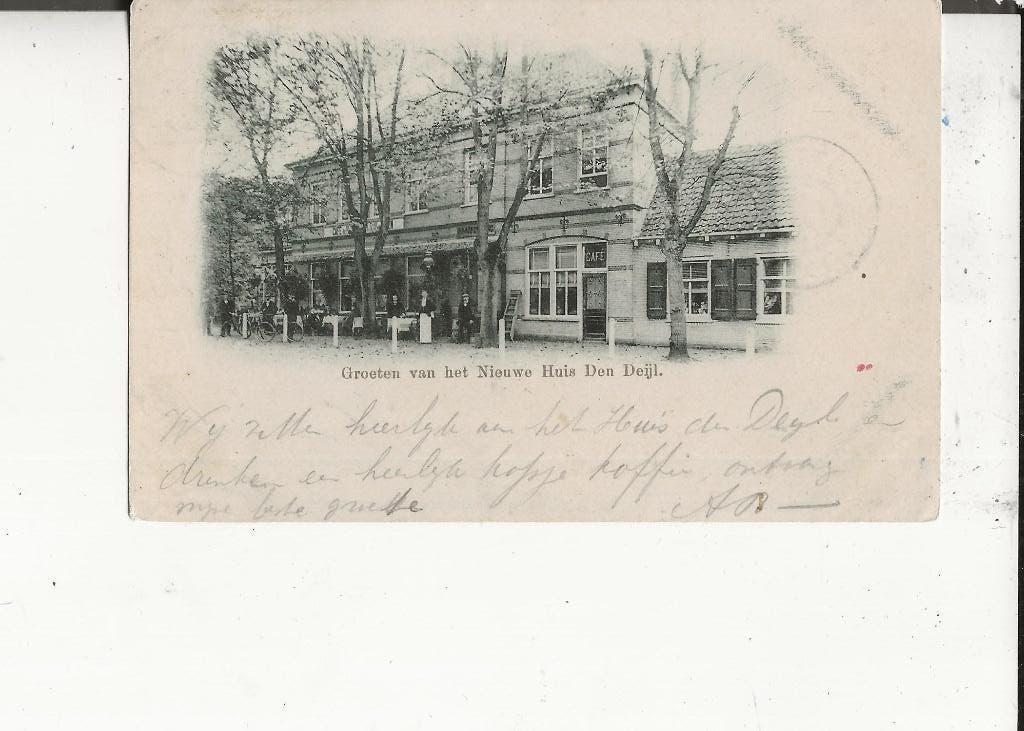 CAFÉ
Groeten van het Nieuwe Huis Den Deijl.
Wij zitten heerlijk aan het Huis den Deyl en
drinken een heerlijk kopje koffie, ontvang
mijne beste groete